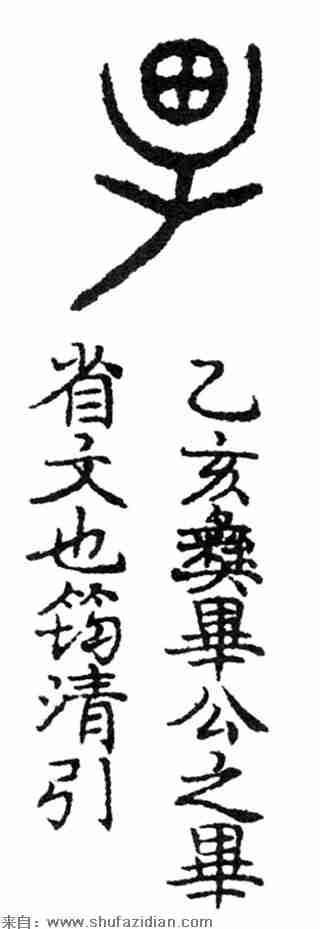 乙亥彝畢公之畢
省文也筠清引
来自：www.shufazidian.com